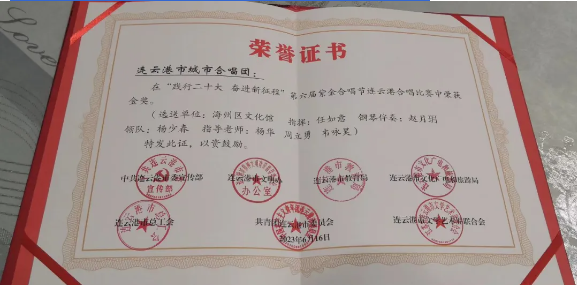 Love
荣誉证书
连云港市城市合唱团：
在“践行二十大 奋进新征程”第六届紫金合唱节连云港合唱比赛中荣获
金奖。
（选送单位：海州区文化馆 指挥：任如意 钢琴伴奏：赵月玥
领队：杨少春 指导老师：杨华 周立勇 韦咏昊）
特发此证，以资鼓励。
中共连云港市委宣传部 连云港市文明办 连云港市教育局 连云港市文化广电和旅游局
宣传部 办公室
连云港市总工会 共青团连云港市委员会 连云港市文学艺术界联合会
2023年6月16日